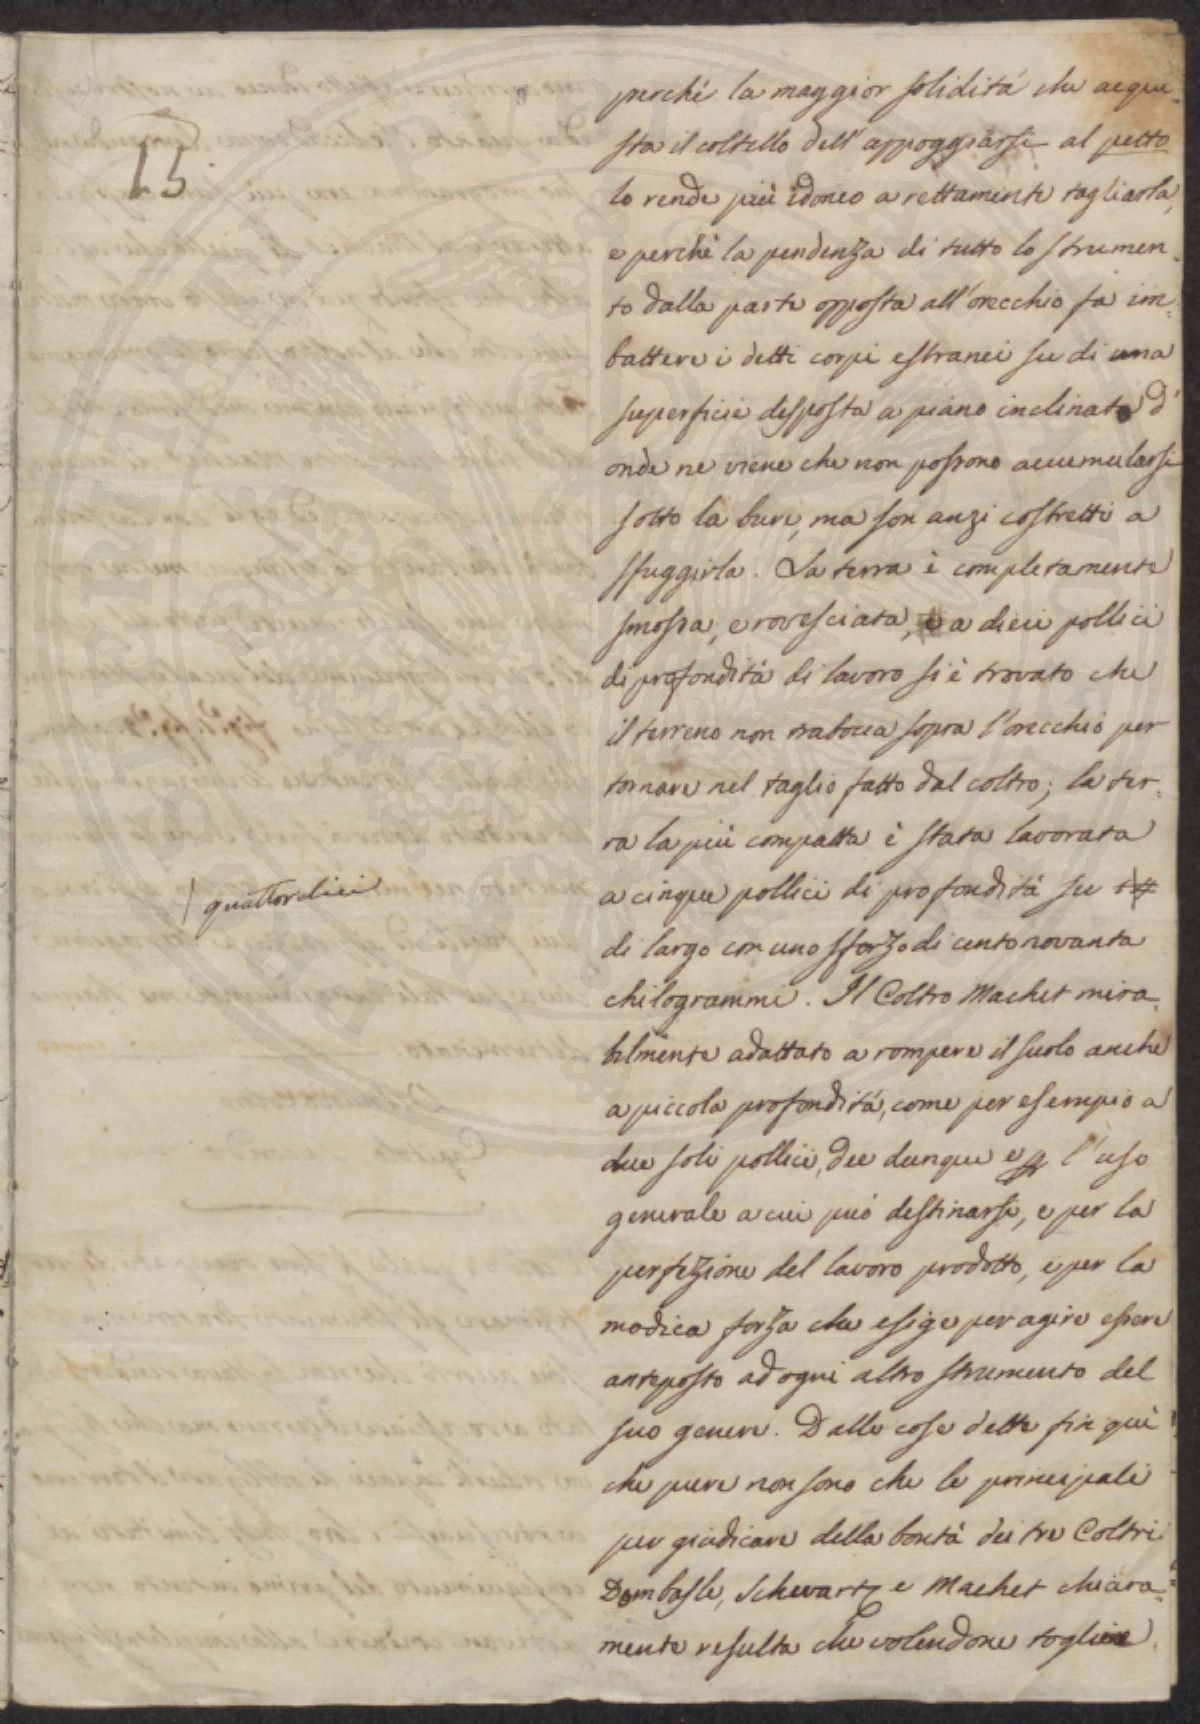 15.
perché la maggior solidità che acqui-
sta il coltello dell'appoggiarsi al petto
lo rende più idoneo a rettamente tagliarla,
e perché la pendenza di tutto lo strumen-
to dalla parte opposta all'orecchio fa im-
battere i detti corpi estranei su di una
superficie disposta a piano inclinato d'
onde ne viene che non possono accumularsi
sotto la bure, ma son anzi costretti a
sfuggirla. La terra è completamente
smossa, e rovesciata, e a dieci pollici
di profondità di lavoro si è trovato che
il terreno non trabocca sopra l'orecchio per
tornare nel taglio fatto dal coltro; la ter-
ra la più compatta è stata lavorata
a cinque pollici di profondità su 14
quattordici
di largo con uno sforzo di cento novanta
chilogrammi. Il Coltro Machet mira-
bilmente adattato a rompere il suolo anche
a piccola profondità, come per esempio a
due soli pollici, dee dunque e l'uso
generale a cui può destinarsi, e per la
perfezione del lavoro prodotto, e per la
modica forza che esige per agire essere
anteposto ad ogni altro strumento del
suo genere. Dalle cose dette fin quì
che pure non sono che le principali
per giudicare della bontà dei tre Coltri
Dombasle, Schwartz e Machet chiara-
mente resulta che volendone togliere